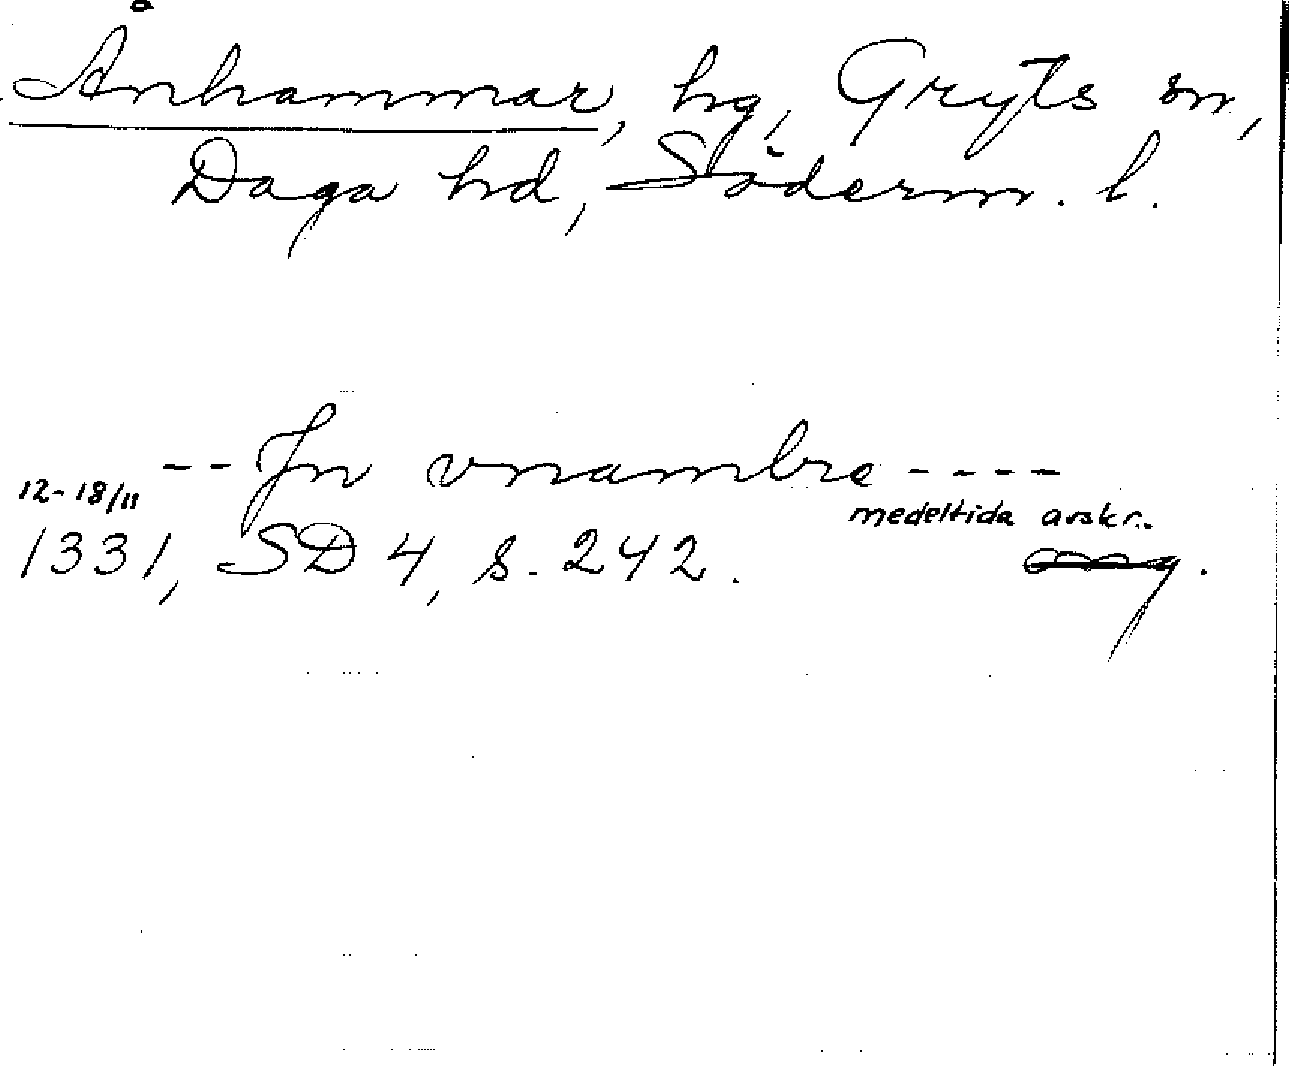 Ånhammar, hg, Gryts sn,
Daga hd, Söderm. l.
-- In vnambre ----
12-18/11 medeltida avskr.
1331, SD 4, s. 242.